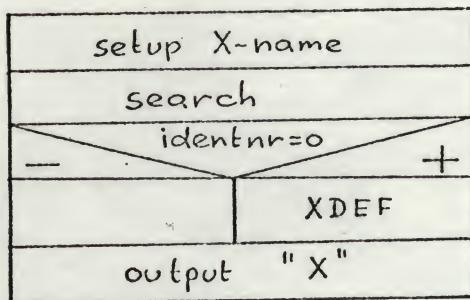 setup X-name
search
identnr=0
- +
XDEF
output "X"